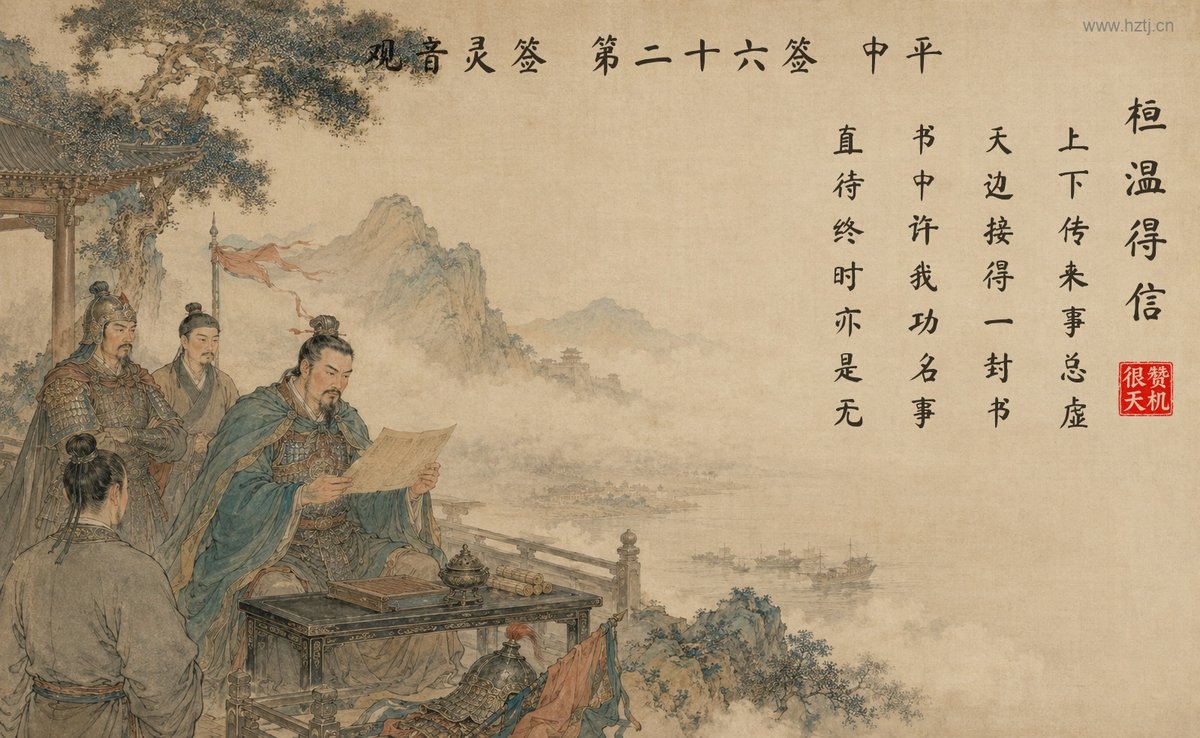 www.hztj.cn
观音灵签 第二十六签 中平
桓温得信
上下传来事总虚
天边接得一封书
书中许我功名事
直待终时亦是无
赞机
很天